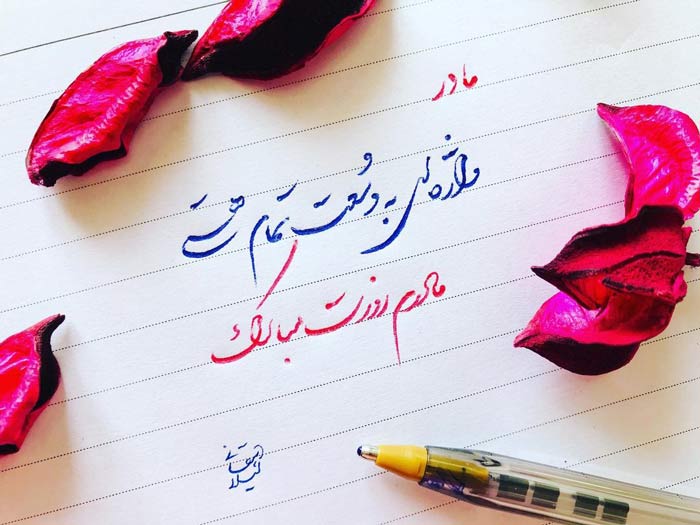 مادر
واژه ای به وسعت تمام هستی
مادرم روزت مبارک